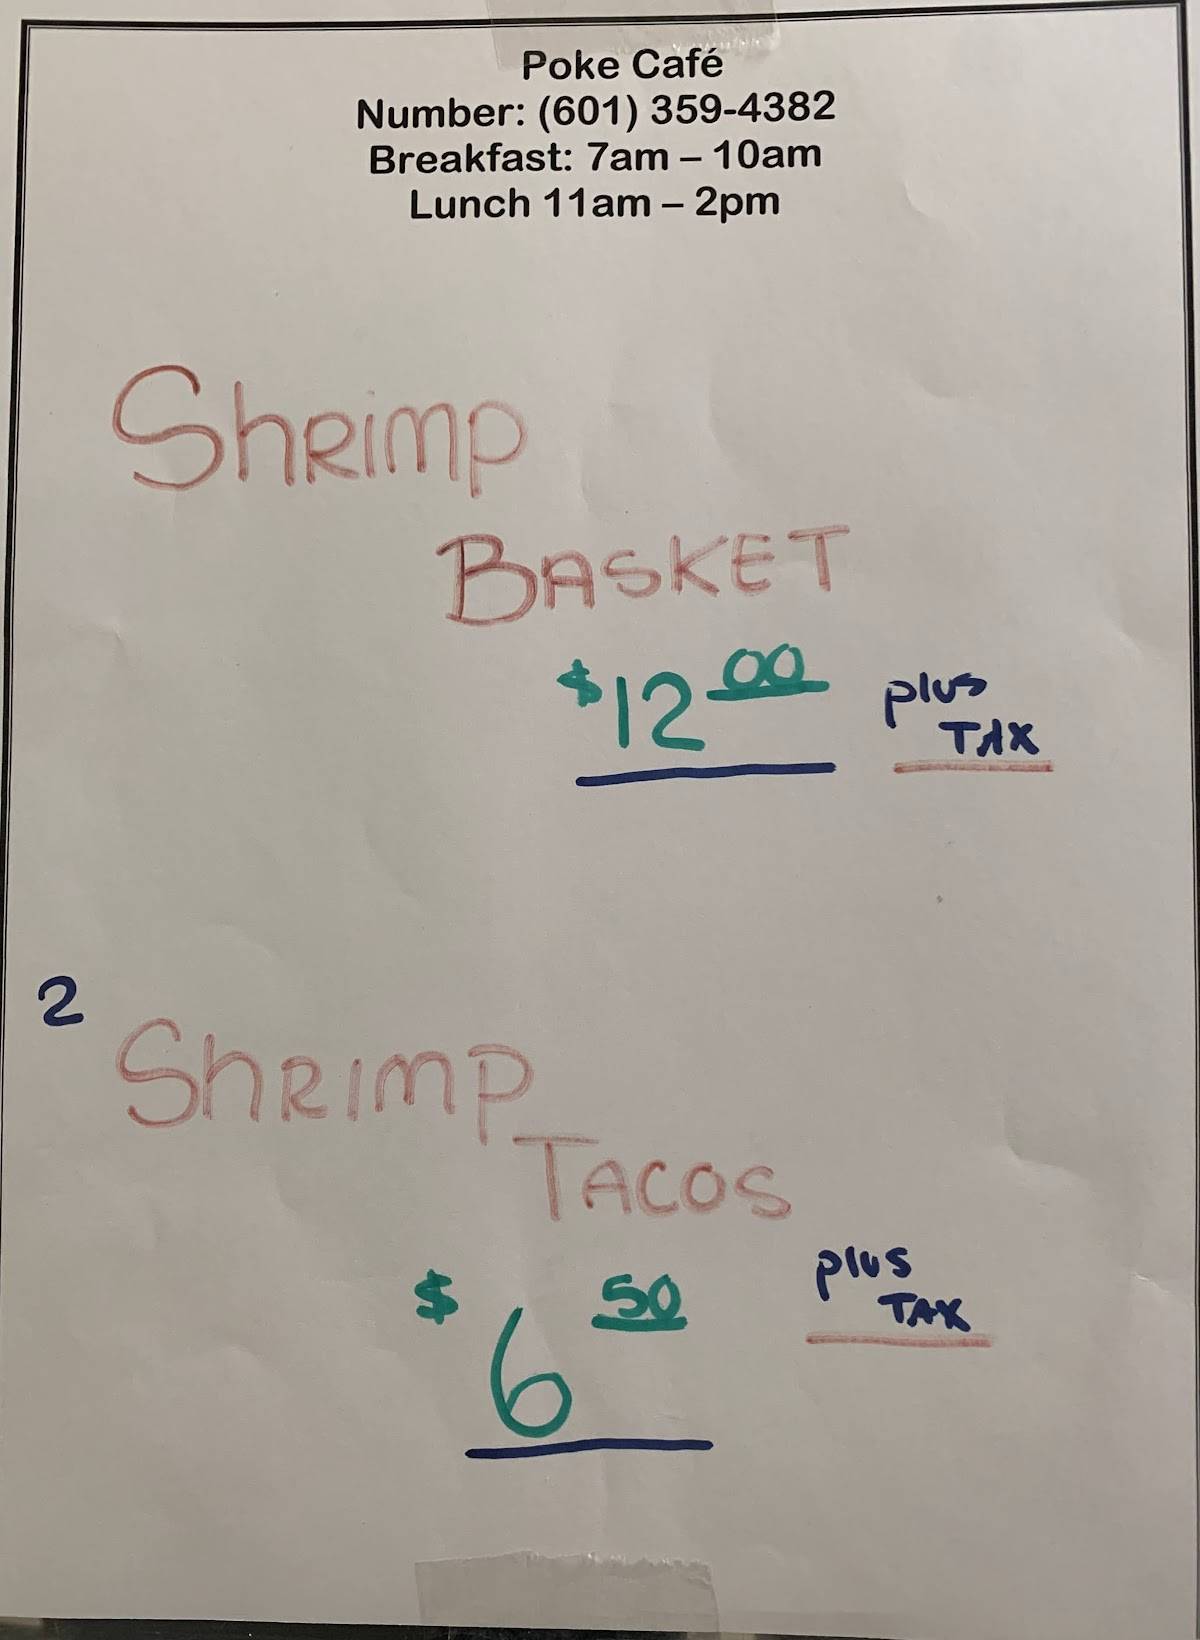 Poke Café
Number: (601) 359-4382
Breakfast: 7am – 10am
Lunch 11am – 2pm
Shrimp
BASKET
$12 00 plus
TAX
2
Shrimp
TACOS
$6 50 plus
TAX